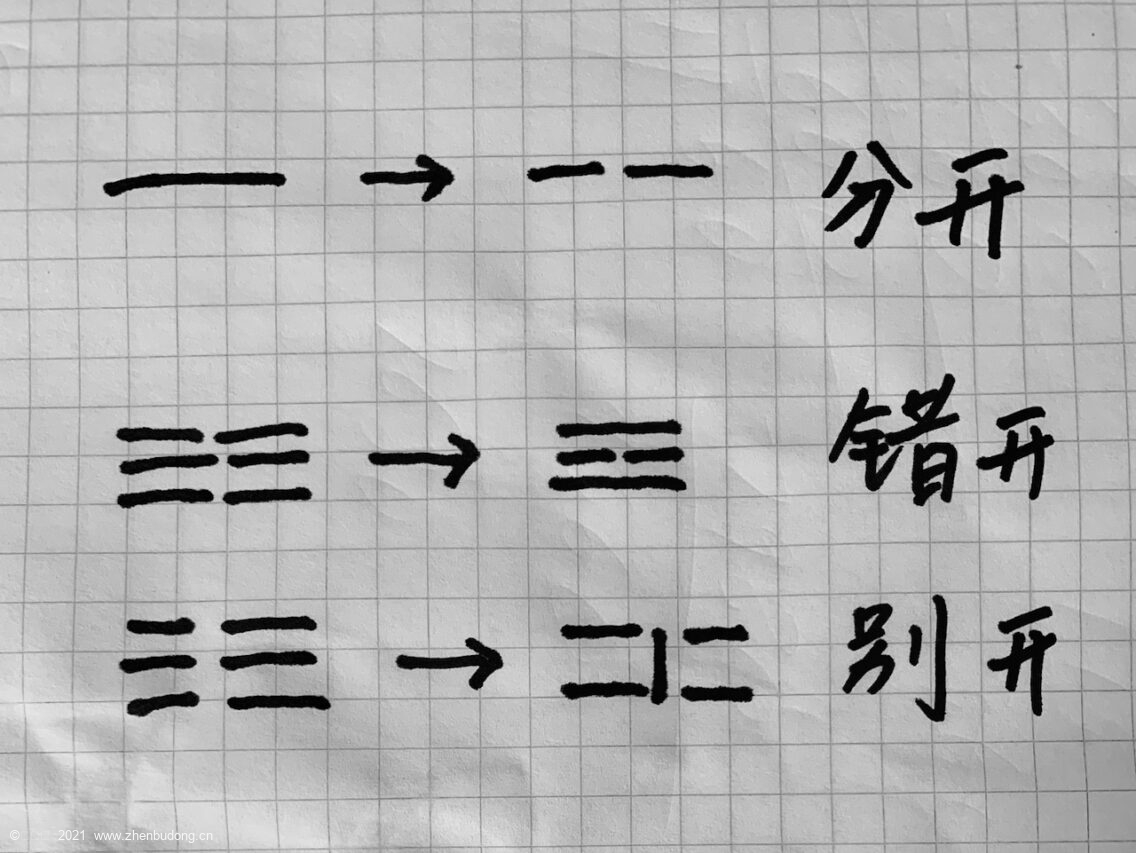 分开
错开
别开
© 2021 www.zhenbudong.cn